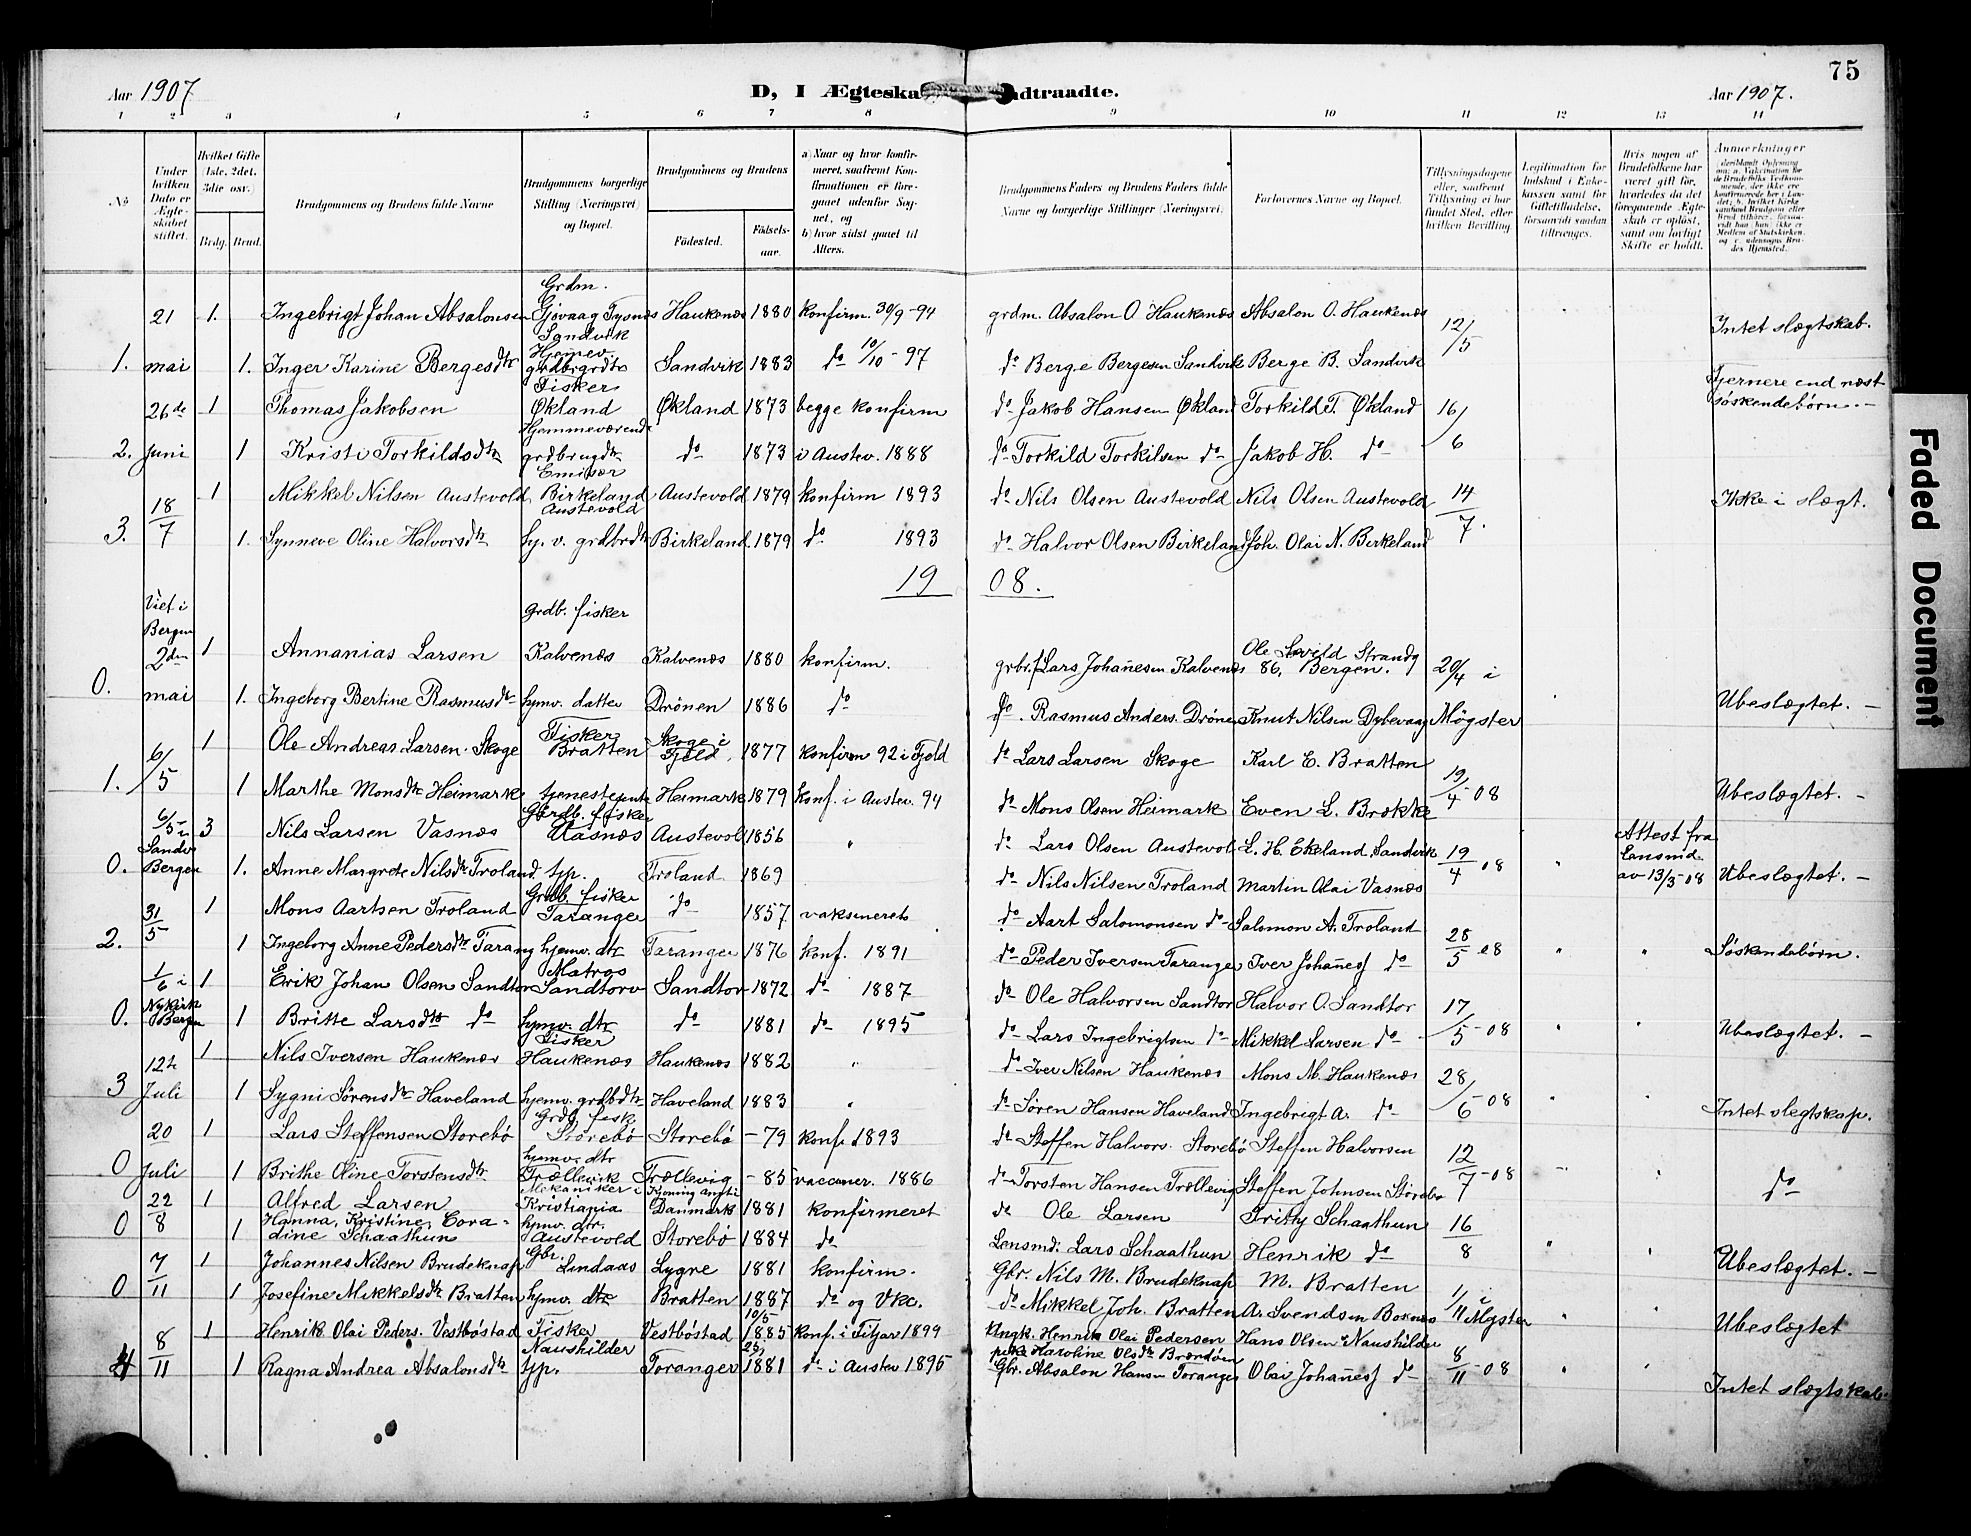 75
Aar 1907
D, I Ægteska
dtraadte.
Aar 1907.
1 2 3 4 5 6 7 8 9 10 11 12 13 14
No.
Under hvilken Dato er Ægteskabet stiftet.
Hvilket Gifte (1ste, 2det, 3die osv.)
Brdg. Brud.
Brudgommens og Brudens fulde Navne
Brudgommens borgerlige Stilling (Næringsvei) og Bopæl.
Brudgommens og Brudens
Födested.
Födselsaar.
a) Naar og hvor konfirmeret, saafremt Konfirmationen er foregaaet udenfor Sognet, og
b) hvor sidst gaaet til Alters.
Brudgommens Faders og Brudens Faders fulde Navne og borgerlige Stillinger (Næringsvei.
Forlovernes Navne og Bopæl.
Tillysningsdagene eller, saafremt Tillysning ei har fundet Sted, efter hvilken Bevilling.
Legitimation for Indskud i Enkekassen samt for Giftetilladelse, forsaavidt saadan tiltrænges.
Hvis nogen af Brudefolkene har været gift för, hvorledes da det foregaaende Ægteskab er oplöst, samt om lovligt Skifte er holdt.
Anmærkninger
21 1. Ingebrigt Johan Absalonsen Grdm. Gjøvaag Tysnes Haukenæs 1880 konfirm. 30/9-94 grdm. Absalon O. Haukenæs Absalon O. Haukenæs 12/5 Intet slægtskab.
1. mai 1. Inger Karine Bergesdtr Sandvik Hjemev. grdbrgrdtr Sandvik 1883 do 10/10-97 do Berge Bergesen Sandvik Berge B. Sandvik
26de 1 Thomas Jakobsen Fisker Økland Økland 1873 begge konfirm do Jakob Hansen Økland Torkild T. Økland 16/6 Fjernere end næstsøskendebørn.-
2. Juni 1 Kristi Torkildsdtr Hjemmeværende grdbrugdtr do 1873 i Austev. 1888 do Torkild Torkilsen do Jakob H. do
18/7 1 Mikkel Nilsen Austevold Birkeland Austevold Austevold 1879 konfirm 1893 do Nils Olsen Austevold Nils Olsen Austevold 14/7. Ikke i slægt.
3. 1. Synneve Oline Halvorsdtr hj. v. grdbrdtr Birkeland 1879 do 1893 do Halvor Olsen Birkeland Joh. Olai N. Birkeland
19 08.
Viet i Bergen 2den 1 Annanias Larsen Grdb. fisker Kalvenæs Kalvenæs 1880 konfirm. grbr.f Lars Johanesen Kalvenæs Ole Strandg 86, Bergen. 20/4 i
0. mai 1. Ingeborg Bertine Rasmusdtr hjmv. datter Drønen 1886 do do. Rasmus Anders. Drønen Knut Nilsen Dybevaag Møgster Ubeslægtet. -
6/5 1 Ole Andreas Larsen Skoge Fisker Bratten Skoge i Fjeld 1877 konfirm 92 i Fjeld do Lars Larsen Skoge Karl E. Bratten 19/4-08
1. 1 Marthe Monsdtr Heimark tjenestejente Heimark 1879 konf. i Austev. 94 do Mons Olsen Heimark Even L. Brække Ubeslægtet. -
6/5 i Sandv. Bergen 3 Nils Larsen Vasnæs Gbrdb. fisker Vasnæs Austevol 1856 " do Lars Olsen Austevol L. H. Ekeland, Sandvik 19/4 08 Attest fra Lensmd. av 13/3-08
0. 1. Anne Margrete Nilsdtr Troland tjp. Troland 1869 do Nils Nilsen Troland Martin Olai Vasnæs Ubeslægtet. -
31/5 1 Mons Aartsen Troland Grdb. fisker Taranger do 1857 vaksineret do Aart Salomonsen do Salomon A. Troland 28/5 08
2. 1 Ingeborg Anne Pedersdtr Tarang hjemv. dtr Taranger 1876 konf. 1891 do Peder Iversen Taranger Iver Johanesf do Søskendebørn.
1/6 i Nykirk Bergen 1 Erik Johan Olsen Sandtor Matros Sandtorv Sandtor 1872 do 1887 do Ole Halvorsen Sandtor Halvor O. Sandtor 17/5-08
0. 1 Britte Larsdtr do hjmv. dtr do 1881 do 1895 do Lars Ingebrigtsen do Mikkel Larsen do Ubeslægtet. -
12te Juli 1 Nils Iversen Haukenæs Fisker Haukenæs Haukenæs 1882 " do Iver Nilsen Haukenæs Mons M. Haukenæs 28/6-08
3 1 Sygni Sørensdtr Haveland hjemv. grdbdtr Haveland 1883 " do Søren Hansen Haveland Ingebrigt A. do Intet slegtskap.
20 1 Lars Steffensen Storebø Grdb. fisk. Storebø Storebø -79 konf. 1893 do Steffen Halvors. Storebø Steffen Halvorsen 12/7-08
0 Juli 1 Brithe Oline Torstensdtr hjmv. dtr Trællevik Trællevig -85 vacciner. 1886 do Torsten Hansen Trællevig Steffen Johnsen Storebø do
22/8 1 Alfred Larsen Mekaniker i Kristiania Danmark 1881 konfirmeret do Ole Larsen Fritty Schaathun 16/8
0 1 Hanna, Kristine, Coradine Schaathun hjmv. dtr. Austevold Storebø 1884 do Lensmd. Lars Schaathun Henrik do Ubeslægtet. -
7/11 1 Johannes Nilsen Brudeknap Gbr. Lindaas Lygre 1881 konfirm. Gbr. Nils M. Brudeknap M. Bratten 1/11 i Mgster
0 1 Josefine Mikkelsdtr Bratten hjmv. dtr Bratten 1887 do og Vkc. do Mikkel Joh. Bratten A. Svendsen Boknæs Ubeslægtet
8/11 1 Henrik Olai Peders. Vestbøstad Fisker Naushilder Vestbøstad 10/5 1885 konf. i Fitjar 1899 Ungk. Henrik Olai Pedersen pike Karoline Olsdtr Hans Olsen Naushilder 8/11-08
4 1 Ragna Andrea Absalonsdtr tjp. Toranger 1881 do i Austev 1895 Gbr. Absalon Hansen Toranger Olai Johanesf do Intet slægtskab
Faded Document